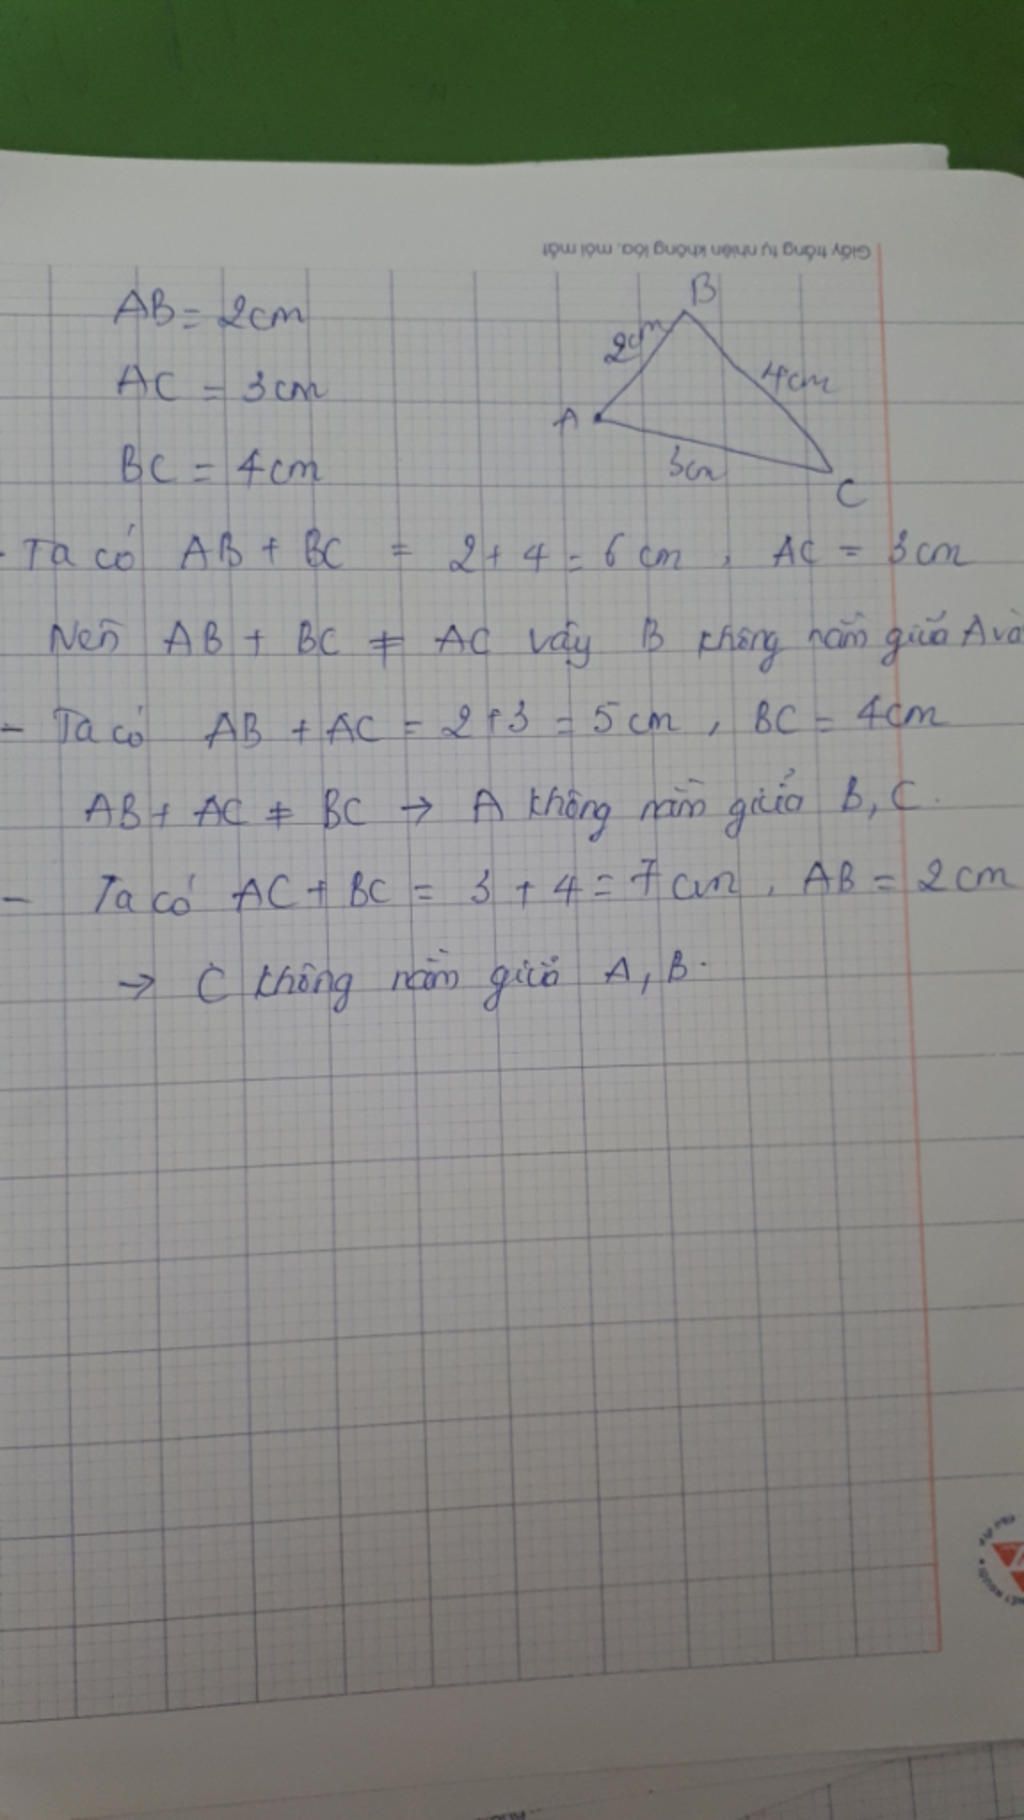 Giấy trắng tự nhiên không lóa, mỏi mắt
AB = 2cm
AC = 3cm
BC = 4cm
B
2cm
4cm
A
3cm
C
- Ta có AB + BC = 2 + 4 = 6 cm, AC = 3 cm
Nên AB + BC ≠ AC vậy B không nằm giữa A và
- Ta có AB + AC = 2 + 3 = 5 cm, BC = 4cm
AB + AC ≠ BC → A không nằm giữa B, C.
- Ta có AC + BC = 3 + 4 = 7 cm, AB = 2 cm
→ C không nằm giữa A, B.